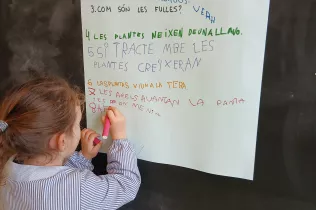 3. COM SÓN LES FULLES? VERD
4 LES PLANTES NEIXEN DE UN ALL NG.
5 SI TRACTE MBE LES
PLANTES CREIXERAN
6 LAS PLANTES VIUN A LA TERA
7 LES ARELS AUANTAN LA PANTA
8